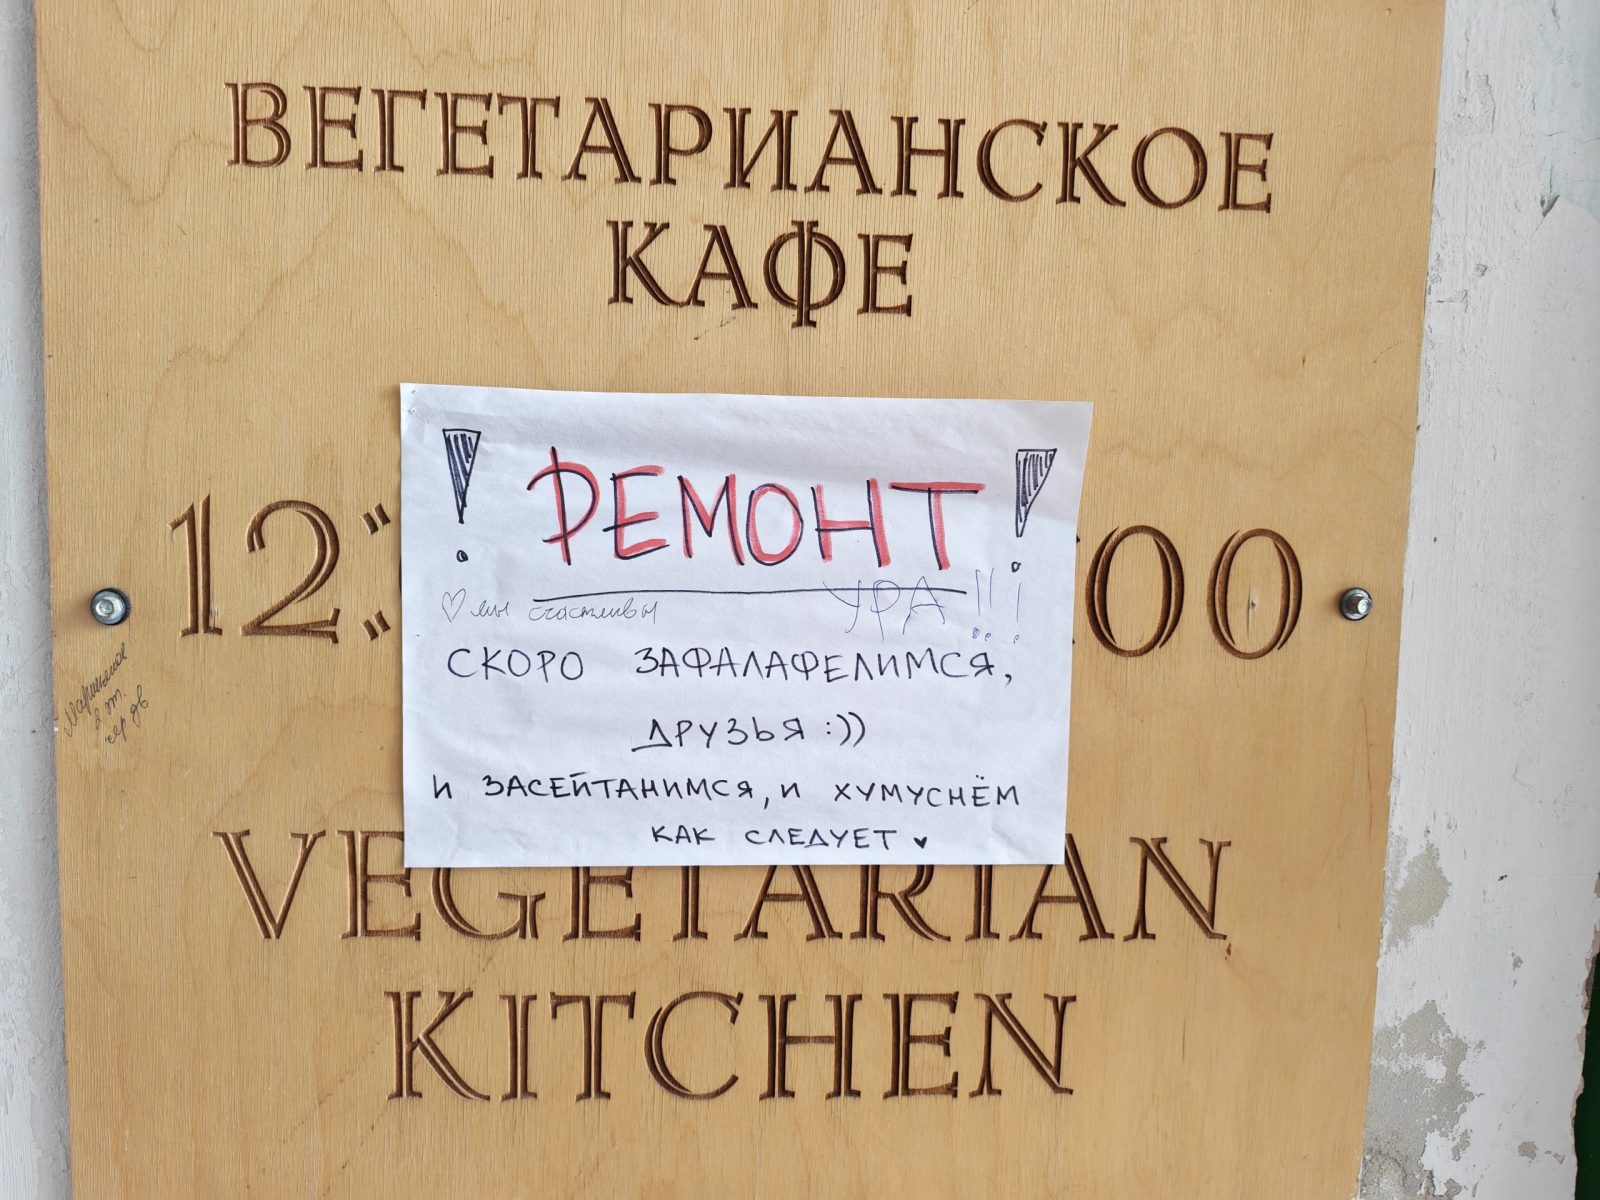 ВЕГЕТАРИАНСКОЕ
КАФЕ
12: 00
! РЕМОНТ !
♡ мы счастливы УРА!!!
СКОРО ЗАФАЛАФЕЛИМСЯ,
ДРУЗЬЯ :))
И ЗАСЕЙТАНИМСЯ, И ХУМУСНЁМ
КАК СЛЕДУЕТ ♥
VEGETARIAN
KITCHEN